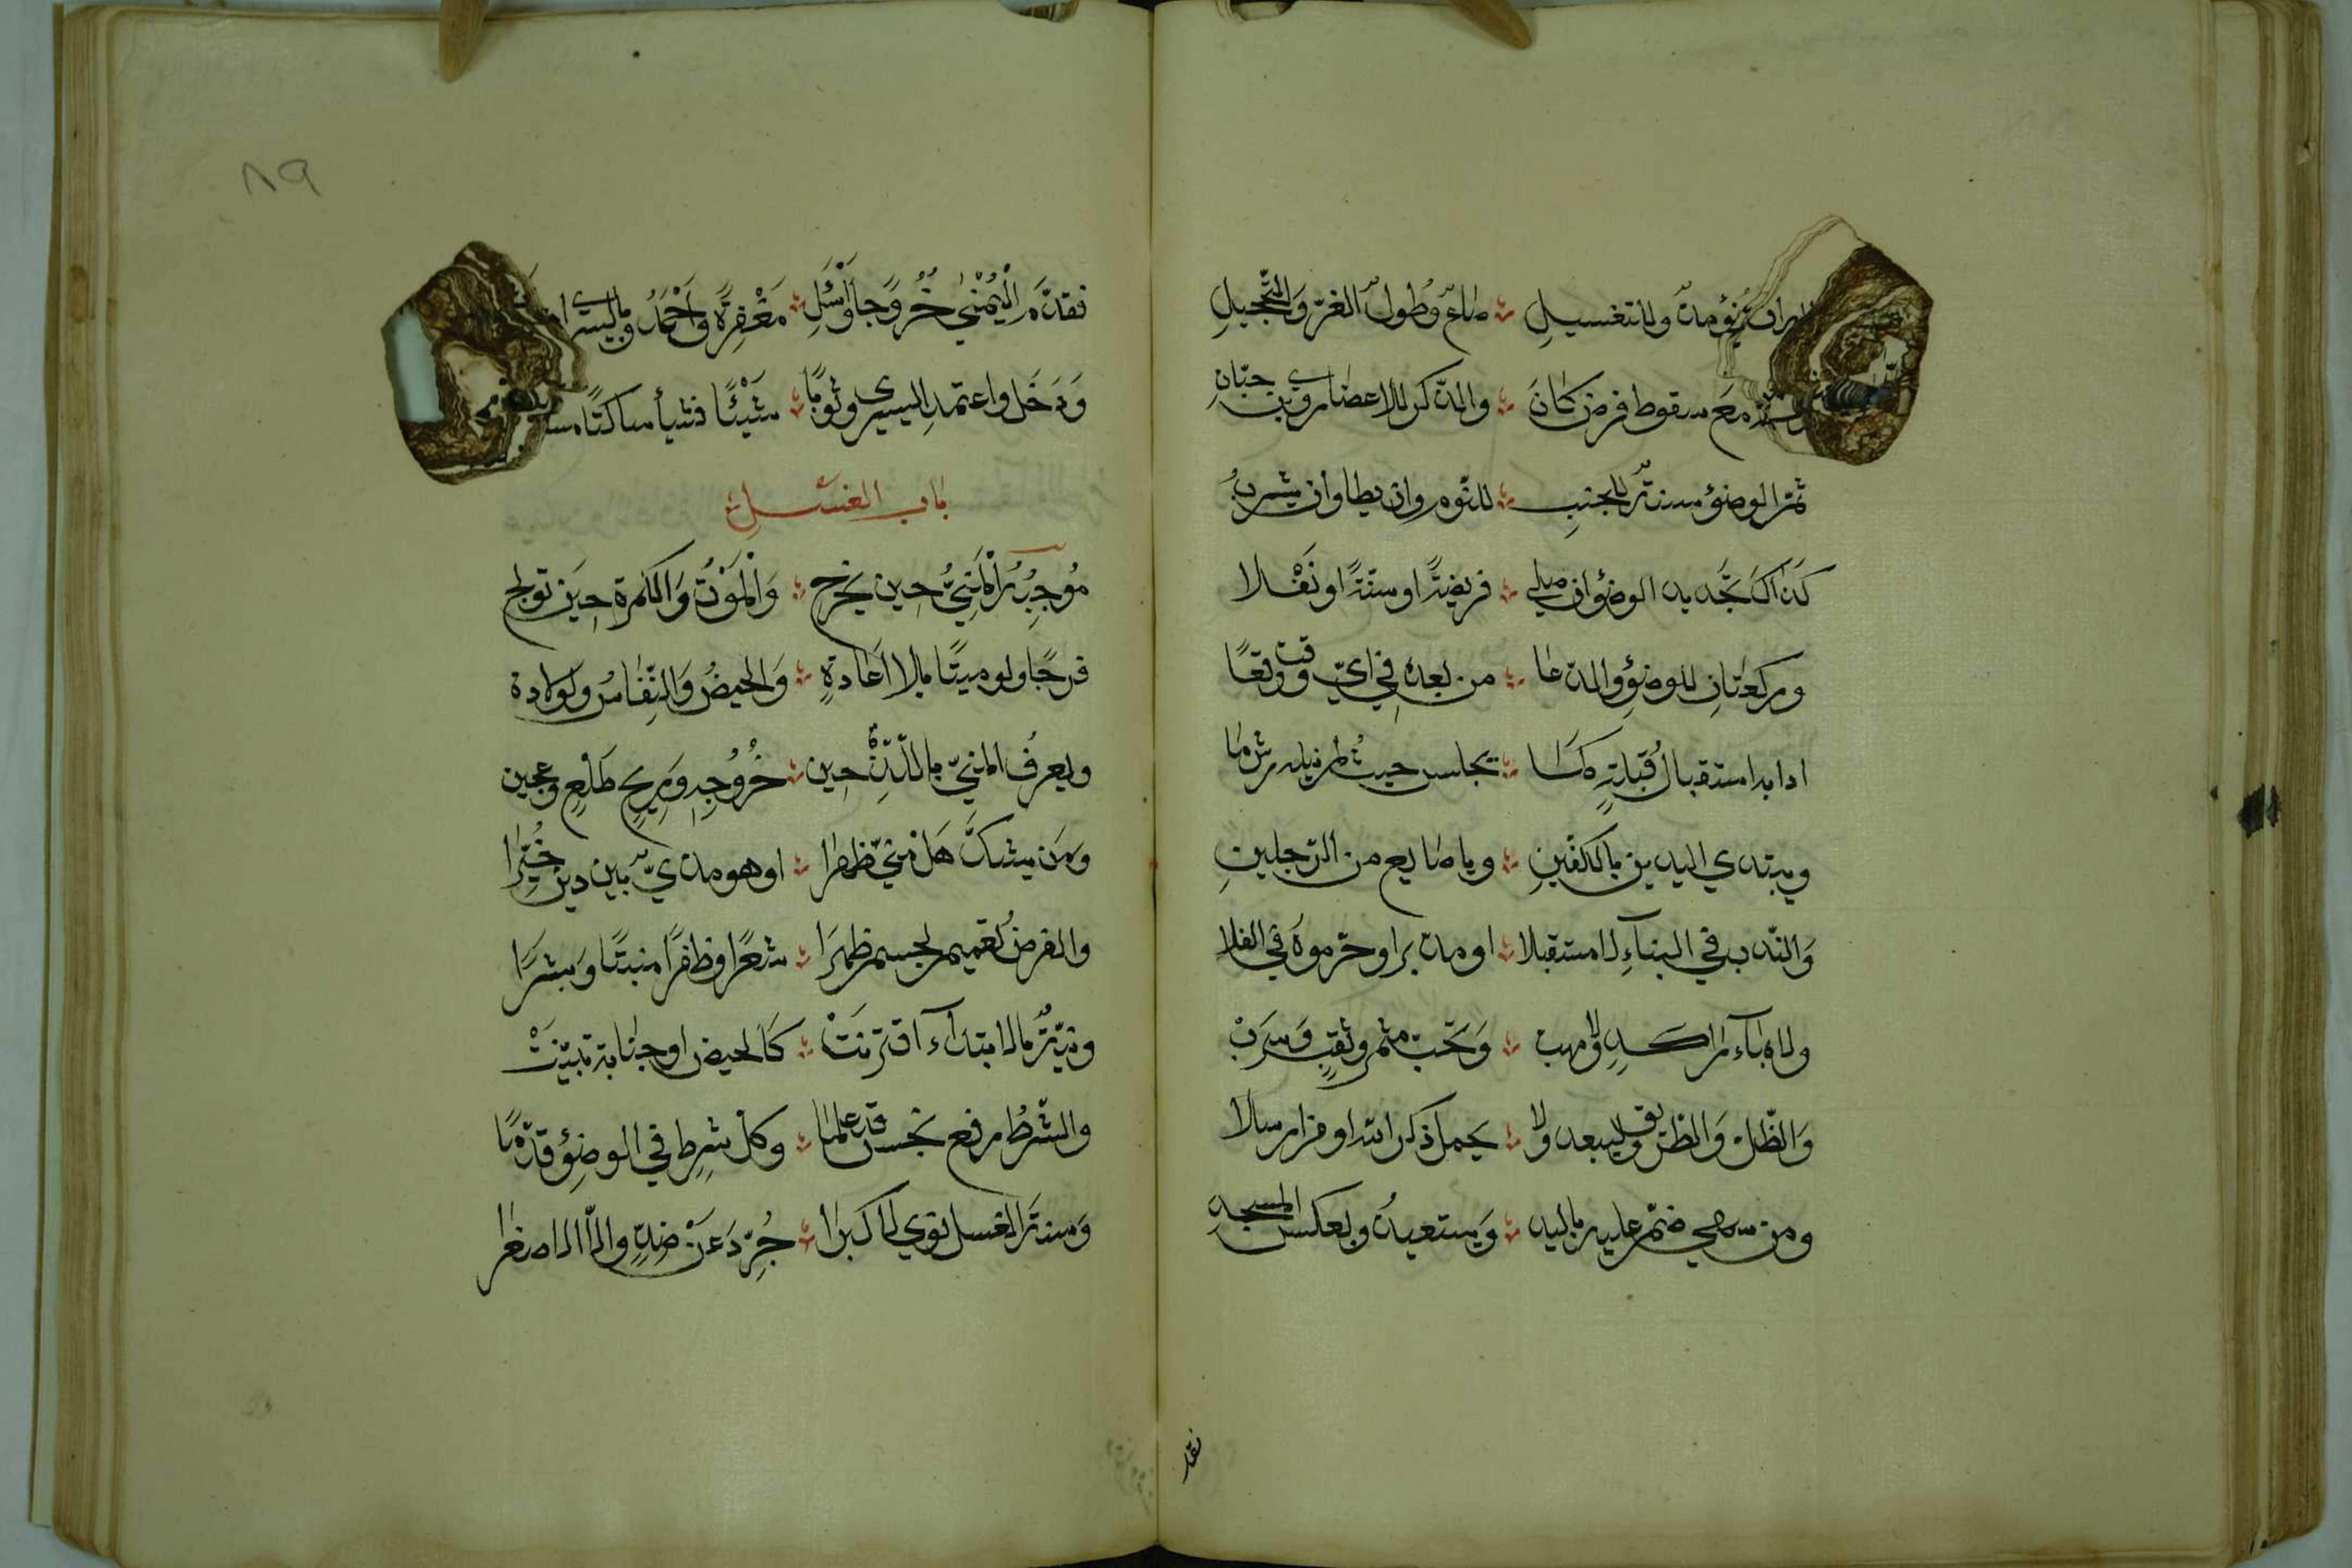 صاعٌ وطُولُ الغرّ وَالتَّحجيلِ
مَعَ سقوط فرض كَانَ ؞ والذكر للاعضاء روى حبّانِ
ثمّ الوضؤ سنةٌ للجنبِ ؞ للنّوم وان يطا وان يشربُ
كَذَاكَ تجديد الوضؤ ان صلي ؞ فريضةً او سنّةً او نَفْلا
وركعتَانِ للوضؤِ والدّعا ؞ من بعدهِ في ايّ وقت وقعًا
اداب استقبالُ قبلةٍ كمَا ؞ يجلس حيثُ لم ينله رش ما
ويبتدي اليدين بالكفّينِ ؞ وباصابع من الرّجلينِ
وَالنّدب في البناءِ لا مستقبلا ؞ او مدبرا وحرّموهُ في الفلا
ولا بماء راكدٍ ولا مهب ؞ وَتحت مثمر وثقبٍ وَسَرَبْ
وَالظّل وَالطّريق وليبعد ولا ؞ يحمل ذكر الله او من ارسالا
ومن سهي ضمّ عليه باليد ؞ وَيستعيذُ وبعكس المسجدِ
نقد
٨٩
فقدّم الْيُمْنٰي خُرُوجًا وَاسْئَلِ ؞ مَغْفِرةً وَاحْمَدُ وباليسرى
وَدَخَل واعتمد اليسرى وثوبًا ؞ شَيْئًا فشيأ ساكتًا
باب الغسل
مُوجِبُهُ الْمَنِيُّ حِين يخرج ؞ وَالْمَوْتُ وَالكمرة حِيَن تولج
فرجًا ولو ميتًا بلا اَعَادةٍ ؞ وَالحيضُ وَالنِّفاسُ ولولادة
ويعرفُ المنيّ باللّذةِ حِين ؞ خُرُوجِهِ وَرِيحِ طَلْعٍ وعجين
وَمَن يشكَّ هَل منيّ ظهرا ؞ او هو مذيّ بين دين خُيِّرا
والفرض تُعميم لجسم ظهرَا ؞ شعرًا وظفرًا منبتًا وَبشرَا
ونيّةٌ بالابتداء اقترنَتْ ؞ كَالحيض او جنابة تبيّنَتْ
والشّرطُ رفع نجسٍ قد علما ؞ وكلّ شرِط في الوضؤِ قدّمَا
وَسنةَ الغسل نوي لاكبرا ؞ جُرِّدَ عَن ضِدٍّ والّا الاصغرا